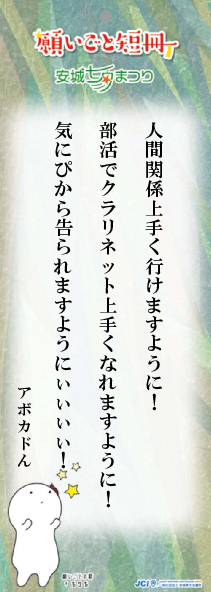 願いごと短冊
安城七夕まつり
人間関係上手く行けますように！
部活でクラリネット上手くなれますように！
気にぴから告られますようにぃぃぃぃ！
アボカドん
JCI